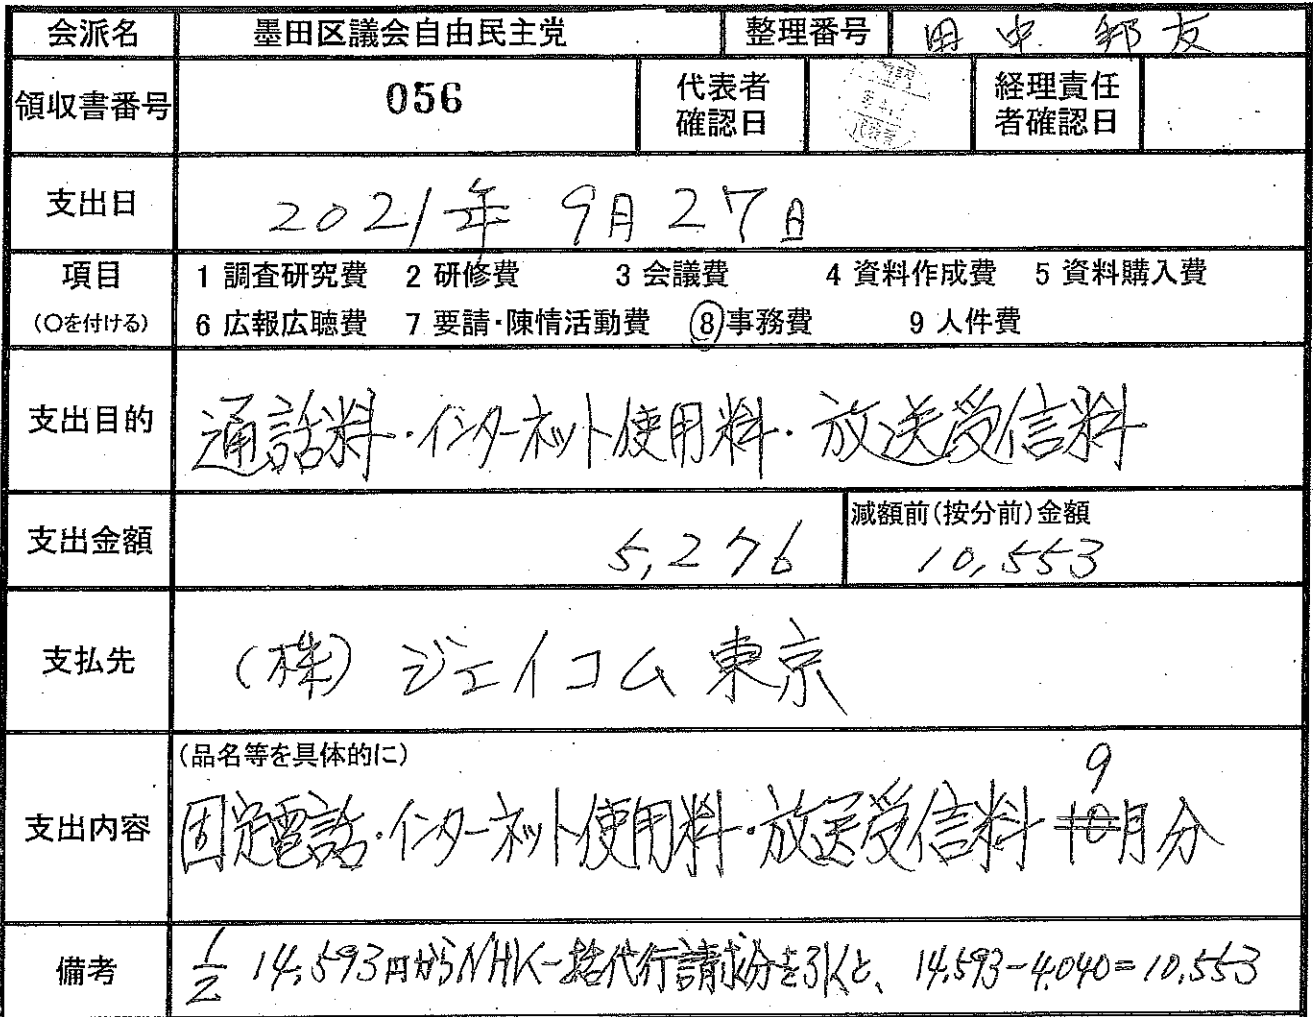 会派名 墨田区議会自由民主党 整理番号 田中 邦友
領収書番号 056 代表者確認日 経理責任者確認日
支出日 2021年 9月27日
項目 1 調査研究費 2 研修費 3 会議費 4 資料作成費 5 資料購入費
(○を付ける) 6 広報広聴費 7 要請・陳情活動費 8 事務費 9 人件費
支出目的 通話料・インターネット使用料・放送受信料
支出金額 5,276 減額前(按分前)金額 10,553
支払先 (株) ジェイコム 東京
(品名等を具体的に) 9
支出内容 固定電話・インターネット使用料・放送受信料 10月分
備考 1/2 14,593円からNHK一括代行請求分を引くと、 14,593-4,040=10,553